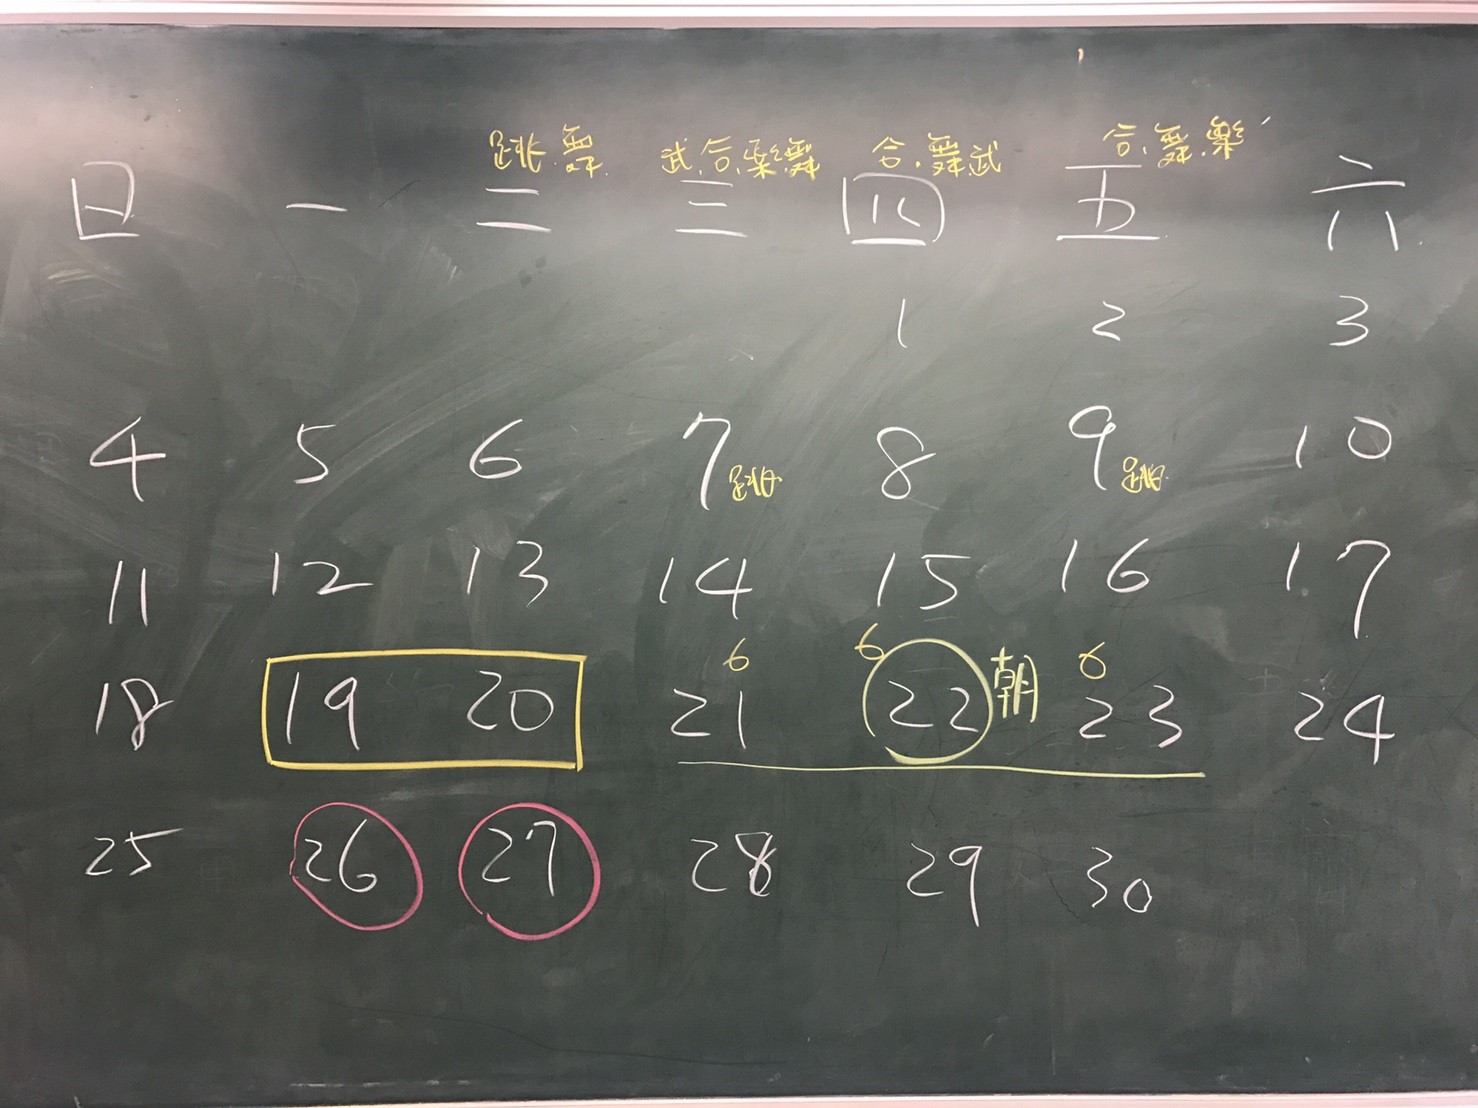 跳.舞. 武.合.樂.舞 合.舞.武 合.舞.樂
日 一 二 三 四 五 六
1 2 3
4 5 6 7 跳 8 9 跳 10
11 12 13 14 15 16 17
6 6 6
18 19 20 21 22 朝 23 24
25 26 27 28 29 30